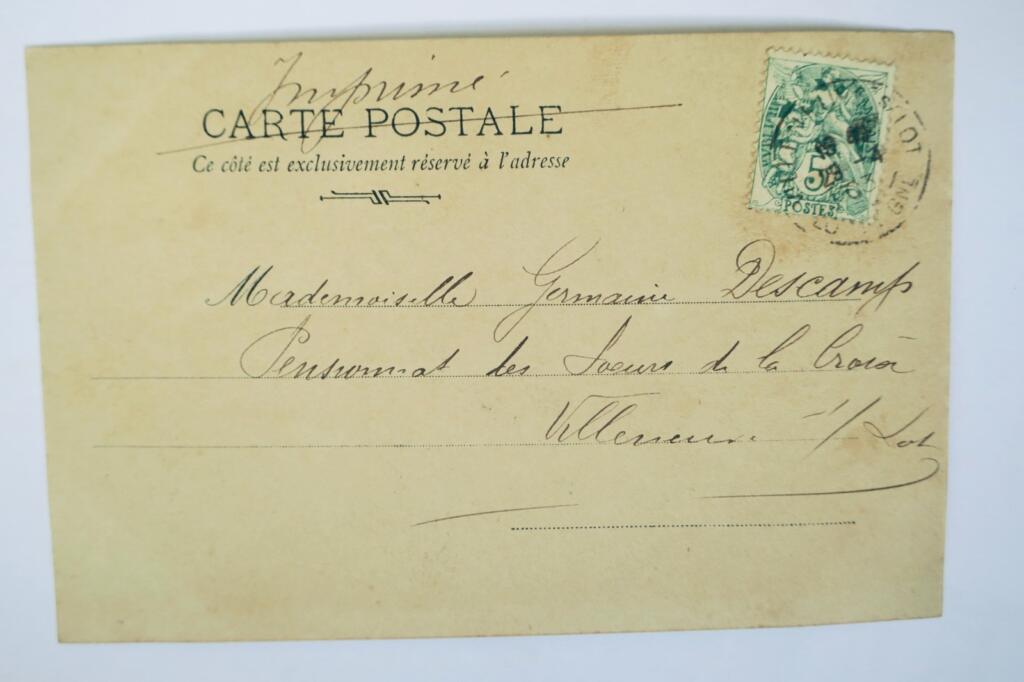 Imprimé
CARTE POSTALE
Ce côté est exclusivement réservé à l'adresse
5
POSTES
S/LOT
Mademoiselle Germaine Descamps
Pensionnat des Soeurs de la Croix
Villeneuve s/Lot